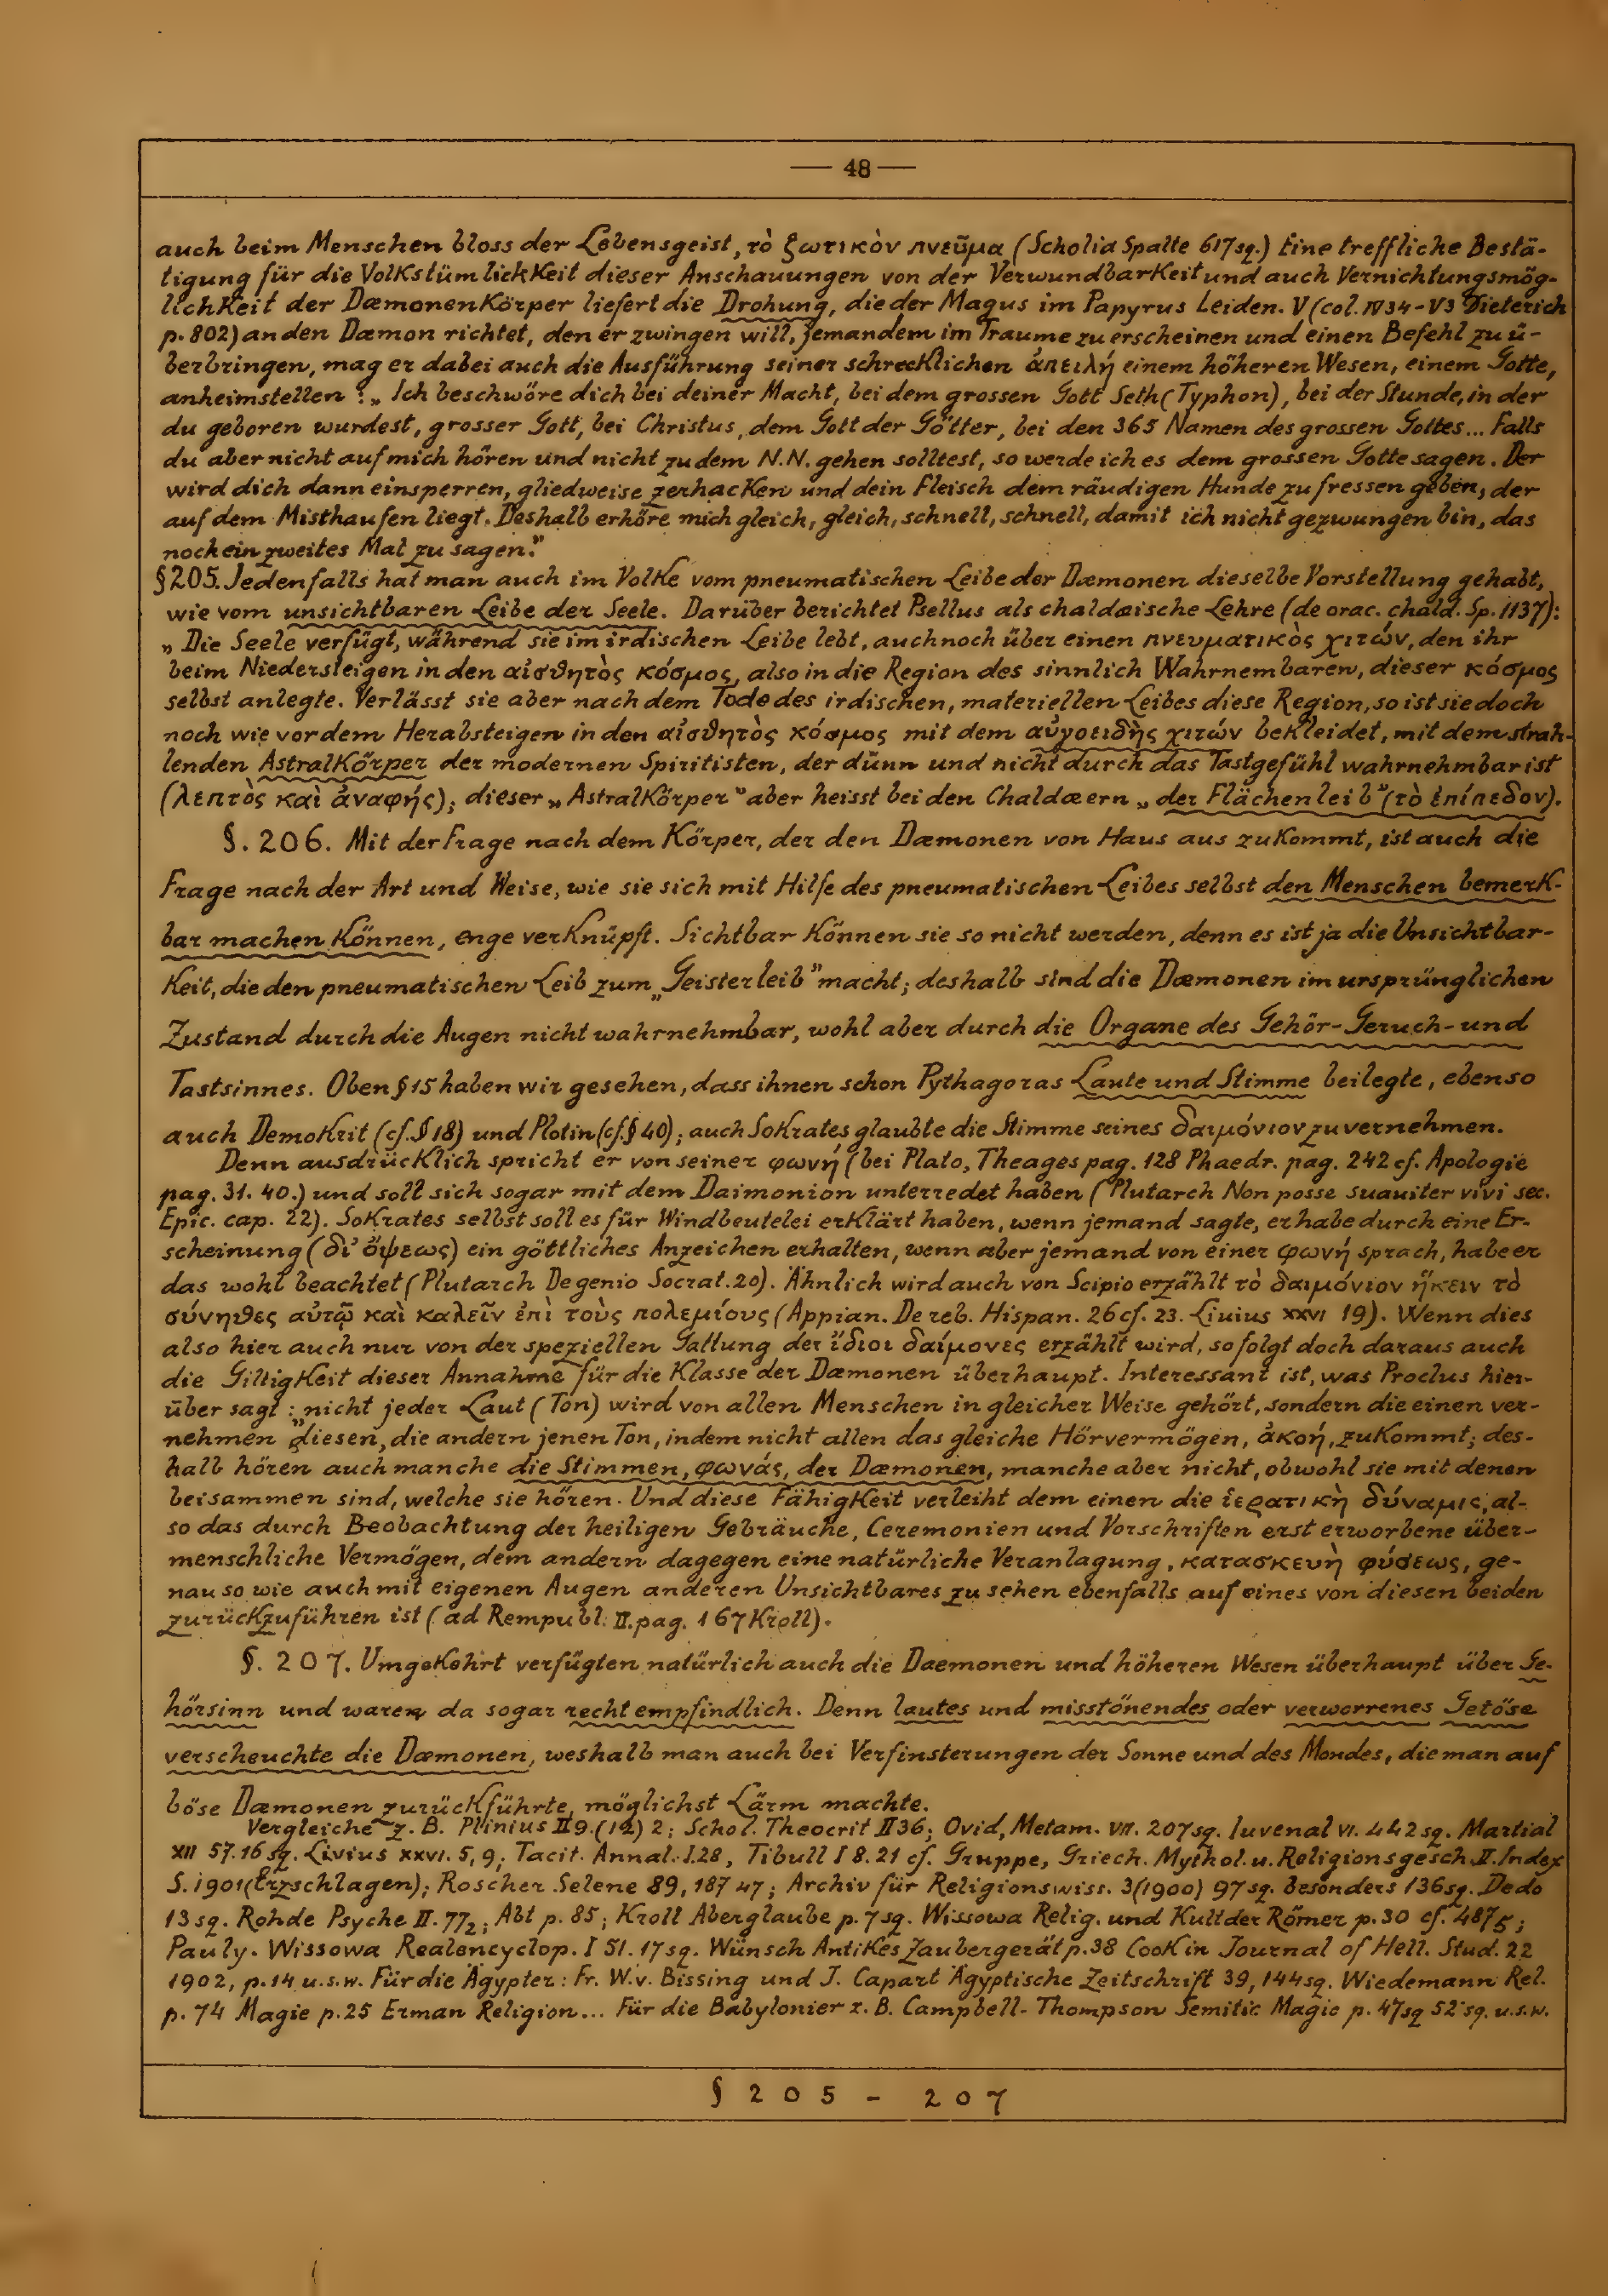 — 48 —
auch beim Menschen bloss der Lebensgeist, τὸ ζωτικὸν πνεῦμα (Scholia Spalte 617sq.) Eine treffliche Bestä-
tigung für die Volkstümlickkeit dieser Anschauungen von der Verwundbarkeit und auch Vernichtungsmög-
lichkeit der Dæmonenkörper liefert die Drohung, die der Magus im Papyrus Leiden. V (col. IV 34 - V 3 Dieterich
p. 802) an den Dæmon richtet, den er zwingen will, jemandem im Traume zu erscheinen und einen Befehl zu ü-
berbringen, mag er dabei auch die Ausführung seiner schrecklichen ἀπειλή einem höheren Wesen, einem Gotte,
anheimstellen : „Ich beschwöre dich bei deiner Macht, bei dem grossen Gott Seth (Typhon), bei der Stunde, in der
du geboren wurdest, grosser Gott, bei Christus, dem Gott der Götter, bei den 365 Namen des grossen Gottes... Falls
du aber nicht auf mich hören und nicht zu dem N.N. gehen solltest, so werde ich es dem grossen Gotte sagen. Der
wird dich dann einsperren, gliedweise zerhacken und dein Fleisch dem räudigen Hunde zu fressen geben, der
auf dem Misthaufen liegt. Deshalb erhöre mich gleich, gleich, schnell, schnell, damit ich nicht gezwungen bin, das
noch ein zweites Mal zu sagen."
§ 205. Jedenfalls hat man auch im Volke vom pneumatischen Leibe der Dæmonen dieselbe Vorstellung gehabt,
wie vom unsichtbaren Leibe der Seele. Darüber berichtet Psellus als chaldæische Lehre (de orac. chald. Sp. 1137):
„Die Seele verfügt, während sie im irdischen Leibe lebt, auch noch über einen πνευματικὸς χιτών, den ihr
beim Niedersteigen in den αἰσθητὸς κόσμος, also in die Region des sinnlich Wahrnembaren, dieser κόσμος
selbst anlegte. Verlässt sie aber nach dem Tode des irdischen, materiellen Leibes diese Region, so ist sie doch
noch wie vor dem Herabsteigen in den αἰσθητὸς κόσμος mit dem αὐγοειδὴς χιτών bekleidet, mit dem strah-
lenden Astralkörper der modernen Spiritisten, der dünn und nicht durch das Tastgefühl wahrnehmbar ist
(λεπτὸς καὶ ἀναφής); dieser „Astralkörper" aber heisst bei den Chaldæern „der Flächenleib" (τὸ ἐπίπεδον).
§. 206. Mit der Frage nach dem Körper, der den Dæmonen von Haus aus zukommt, ist auch die
Frage nach der Art und Weise, wie sie sich mit Hilfe des pneumatischen Leibes selbst den Menschen bemerk-
bar machen können, enge verknüpft. Sichtbar können sie so nicht werden, denn es ist ja die Unsichtbar-
keit, die den pneumatischen Leib zum „Geisterleib" macht; deshalb sind die Dæmonen im ursprünglichen
Zustand durch die Augen nicht wahrnehmbar, wohl aber durch die Organe des Gehör- Geruch- und
Tastsinnes. Oben § 15 haben wir gesehen, dass ihnen schon Pythagoras Laute und Stimme beilegte, ebenso
auch Demokrit (cf. § 18) und Plotin (cf. § 40); auch Sokrates glaubte die Stimme seines δαιμόνιον zu vernehmen.
Denn ausdrücklich spricht er von seiner φωνή (bei Plato, Theages pag. 128 Phaedr. pag. 242 cf. Apologie
pag. 31. 40.) und soll sich sogar mit dem Daimonion unterredet haben (Plutarch Non posse suauiter vivi sec.
Epic. cap. 22). Sokrates selbst soll es für Windbeutelei erklärt haben, wenn jemand sagte, er habe durch eine Er-
scheinung (δι' ὄψεως) ein göttliches Anzeichen erhalten, wenn aber jemand von einer φωνή sprach, habe er
das wohl beachtet (Plutarch De genio Socrat. 20). Ähnlich wird auch von Scipio erzählt τὸ δαιμόνιον ἥκειν τὸ
σύνηθες αὐτῷ καὶ καλεῖν ἐπὶ τοὺς πολεμίους (Appian. De reb. Hispan. 26 cf. 23. Liuius XXVI 19). Wenn dies
also hier auch nur von der speziellen Gattung der ἴδιοι δαίμονες erzählt wird, so folgt doch daraus auch
die Giltigkeit dieser Annahme für die Klasse der Dæmonen überhaupt. Interessant ist, was Proclus hier-
über sagt: „nicht jeder Laut (Ton) wird von allen Menschen in gleicher Weise gehört, sondern die einen ver-
nehmen diesen, die andern jenen Ton, indem nicht allen das gleiche Hörvermögen, ἀκοή, zukommt; des-
halb hören auch manche die Stimmen, φωνάς, der Dæmonen, manche aber nicht, obwohl sie mit denen
beisammen sind, welche sie hören. Und diese Fähigkeit verleiht dem einen die ἱερατικὴ δύναμις, al-
so das durch Beobachtung der heiligen Gebräuche, Ceremonien und Vorschriften erst erworbene über-
menschliche Vermögen, dem andern dagegen eine natürliche Veranlagung, κατασκευὴ φύσεως, ge-
nau so wie auch mit eigenen Augen anderen Unsichtbares zu sehen ebenfalls auf eines von diesen beiden
zurückzuführen ist (ad Rempubl. II. pag. 167 Kroll).
§. 207. Umgekehrt verfügten natürlich auch die Daemonen und höheren Wesen überhaupt über Ge-
hörsinn und waren da sogar recht empfindlich. Denn lautes und misstönendes oder verworrenes Getöse
verscheuchte die Dæmonen, weshalb man auch bei Verfinsterungen der Sonne und des Mondes, die man auf
böse Dæmonen zurückführte, möglichst Lärm machte.
Vergleiche z. B. Plinius II 9. (12) 2; Schol. Theocrit II 36; Ovid, Metam. VII. 207sq. Iuvenal VI. 442 sq. Martial
XII 57. 16 sq. Livius XXVI. 5, 9; Tacit. Annal. I. 28, Tibull I 8. 21 cf. Gruppe, Griech. Mythol. u. Religionsgesch. II. Index
S. 1901 (Erzschlagen); Roscher Selene 89, 187 47; Archiv für Religionswiss. 3 (1900) 97sq. besonders 136sq. Dedo
13 sq. Rohde Psyche II. 77₂; Abt p. 85; Kroll Aberglaube p. 7 sq. Wissowa Relig. und Kult der Römer p. 30 cf. 487₅;
Pauly. Wissowa Realencyclop. I 51. 17 sq. Wünsch Antikes Zaubergerät p. 38 Cook in Journal of Hell. Stud. 22
1902, p. 14 u.s.w. Für die Ägypter: Fr. W. v. Bissing und J. Capart Ägyptische Zeitschrift 39, 144sq. Wiedemann Rel.
p. 74 Magie p. 25 Erman Religion... Für die Babylonier z. B. Campbell-Thompson Semitic Magic p. 47sq 52 sq. u.s.w.
§ 205 - 207